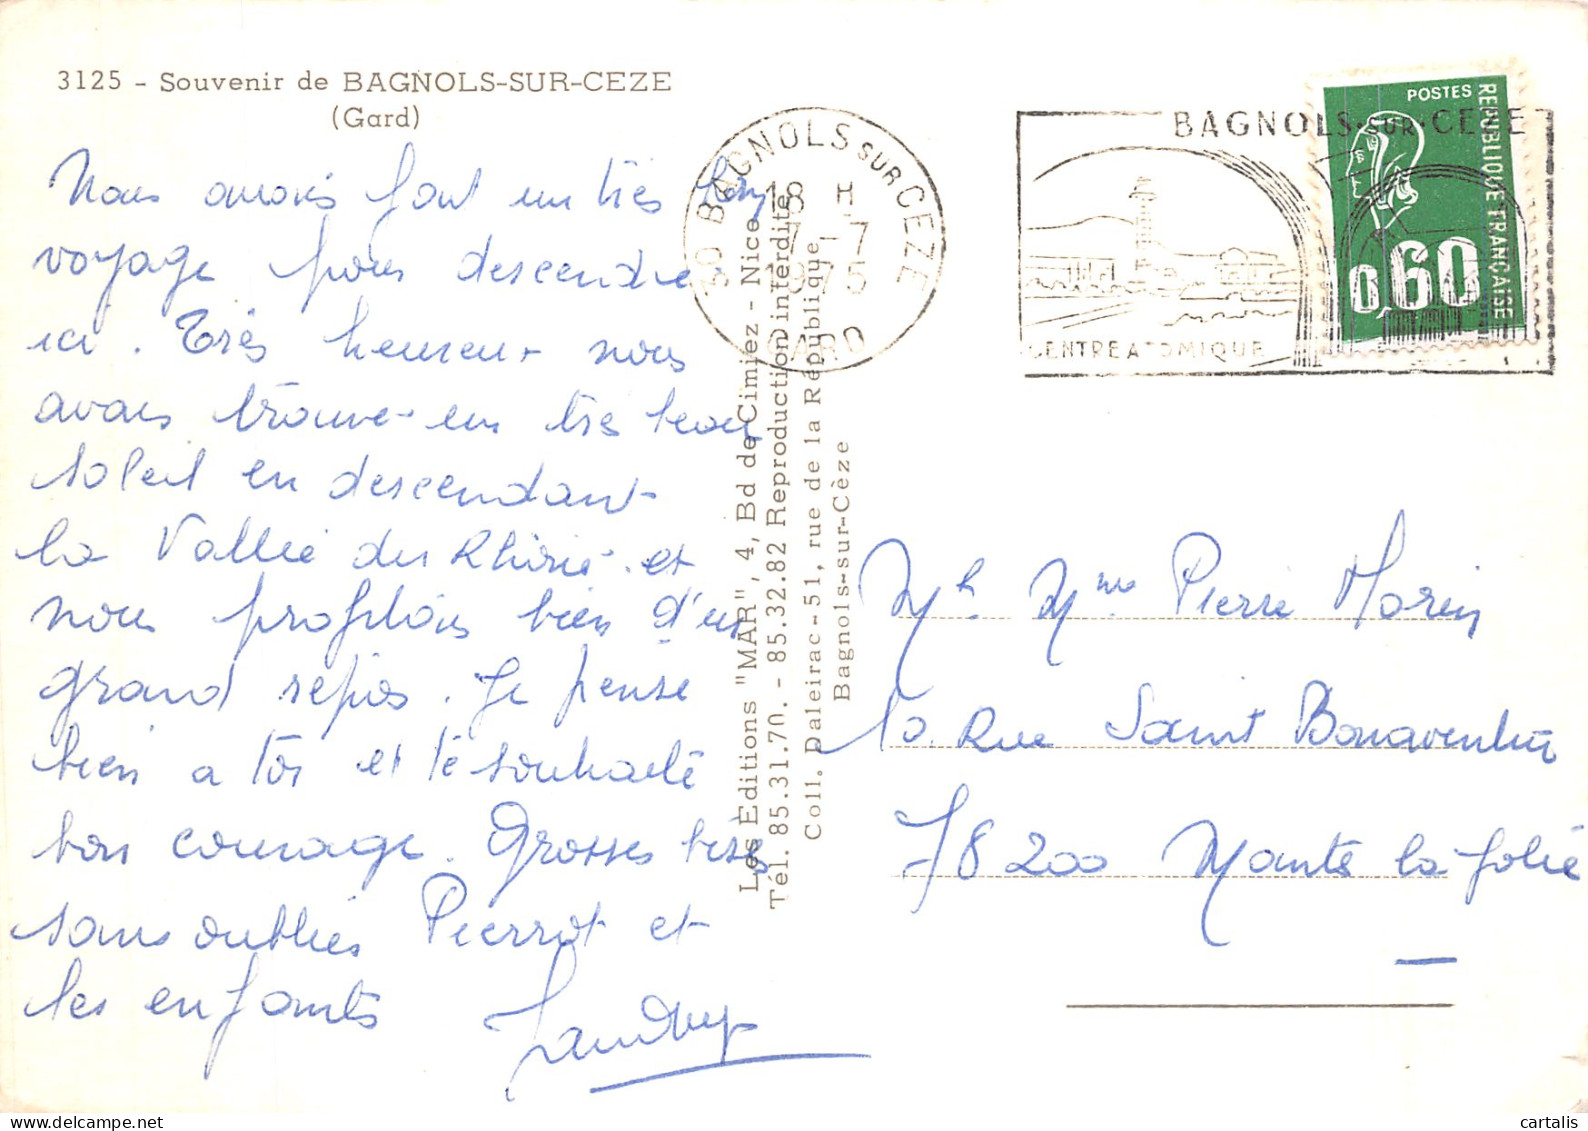 3125 - Souvenir de BAGNOLS-SUR-CEZE
(Gard)
Nous avons fait un très bon
voyage pour descendre
ici. Très heureux nous
avons trouvé un très beau
soleil en descendant
la Vallée du Rhône et
nous profitons bien d'un
grand repos. Je pense
bien a toi et te souhaite
bon courage. Grosses bises
sans oublier Pierrot et
les enfants
Les Editions "MAR", 4, Bd de Cimiez - Nice
Tél. 85.31.70. - 85.32.82 Reproduction interdite
Coll. Daleirac-51, rue de la République
Bagnols-sur-Cèze
30 BAGNOLS SUR CEZE
18 H
7-7
1975
GARD
BAGNOLS-SUR-CEZE
CENTRE ATOMIQUE
POSTES
REPUBLIQUE FRANÇAISE
0,60
Mr Mme Pierre Morin
10 Rue Saint Bonaventure
78200 Mante la Jolie
cartalis
www.delcampe.net